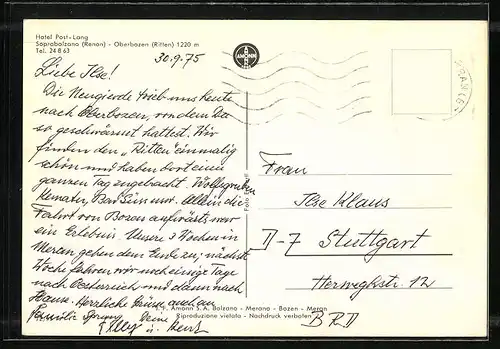 Hotel Post-Lang
Soprabolzano (Renon) - Oberbozen (Ritten) 1220 m
Tel. 24 8 63
30.9.75
AMONN
Liebe Ilse!
Die Neugierde trieb uns heute
nach Oberbozen, von dem Du
so geschwärmt hattest. Wir
finden den „Ritten" einmalig
schön und haben dort einen
ganzen Tag zugebracht. Wolfsgruben
Kematen, Bad Süss usw. Allein die
Fahrt von Bozen aufwärts, war
ein Erlebnis. Unsere 3 Wochen in
Meran gehen dem Ende zu; nächste
Woche fahren wir noch einige Tage
nach Oesterreich und dann nach
Hause. Herzliche Grüsse, auch an
Familie Deine
u.
Frau
Ilse Klaus
D-7 Stuttgart
Herweghstr. 12
BRD
Foto
F. Amonn S. A. Bolzano - Merano - Bozen - Meran
Riproduzione vietata - Nachdruck verboten